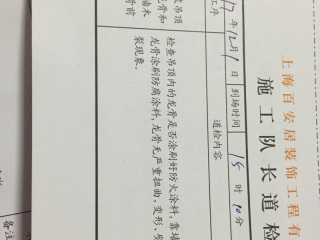 上海百安居装饰工程有
施工队长道检
17年12月1日 到场时间 15时10分
工序 道检内容
吊顶
龙骨和
检查吊顶内的龙骨是否涂刷好防火涂料,靠墙
龙骨涂刷防腐涂料,龙骨无严重扭曲、变形、
裂现象。
备注